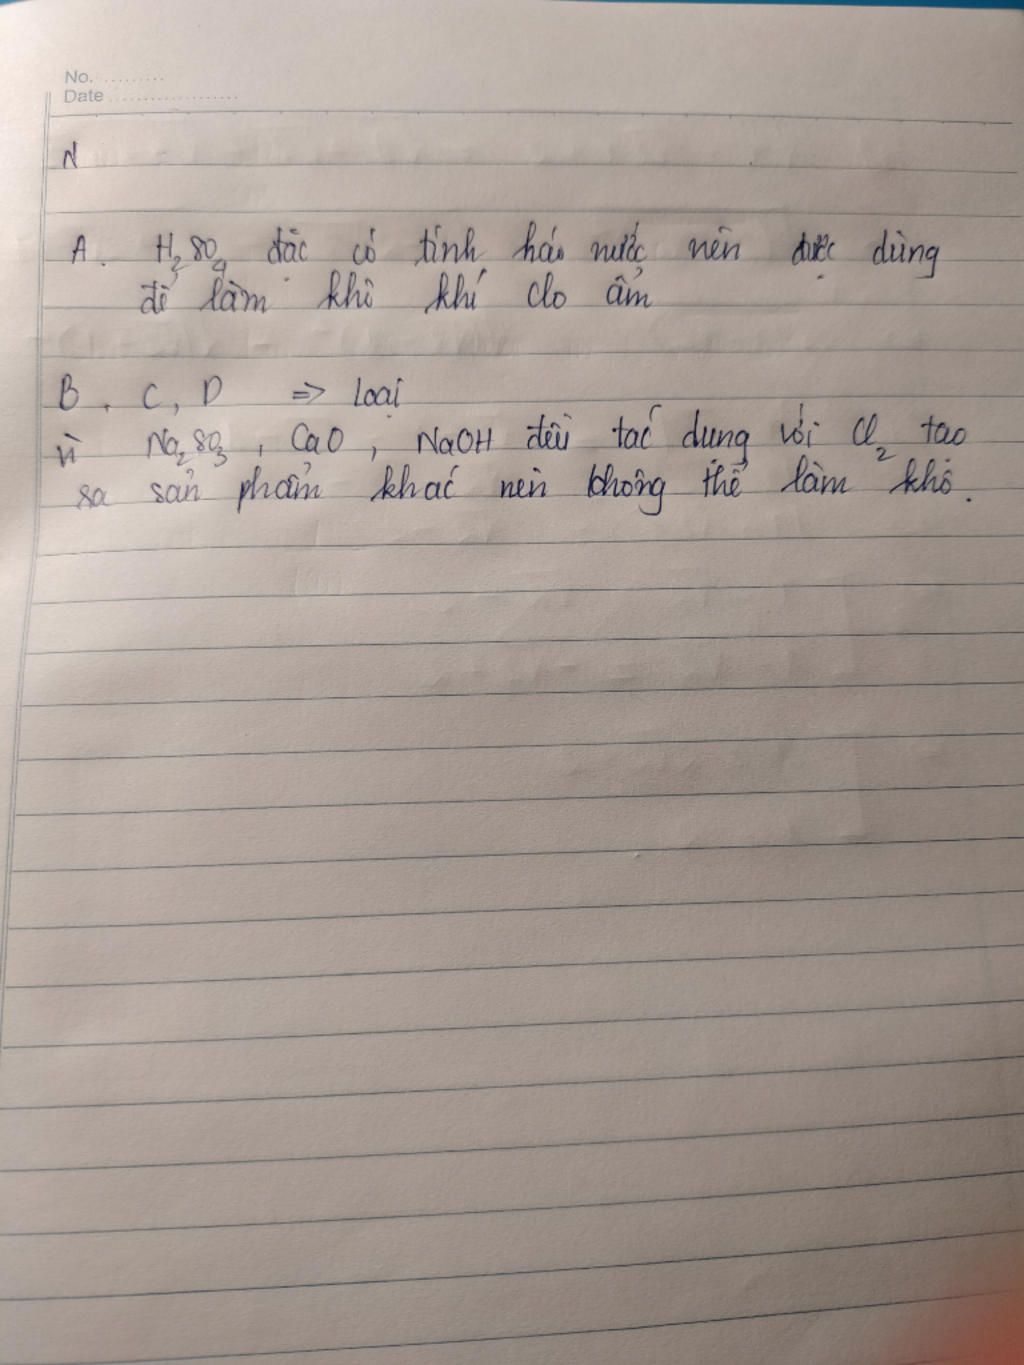 No. ..........
Date ....................
N
A. H₂SO₄ đặc có tính háo nước nên được dùng
để làm khô khí clo ẩm
B, C, D => loại
vì Na₂SO₃, CaO, NaOH đều tác dụng với Cl₂ tạo
sa sản phẩm khác nên không thể làm khô.